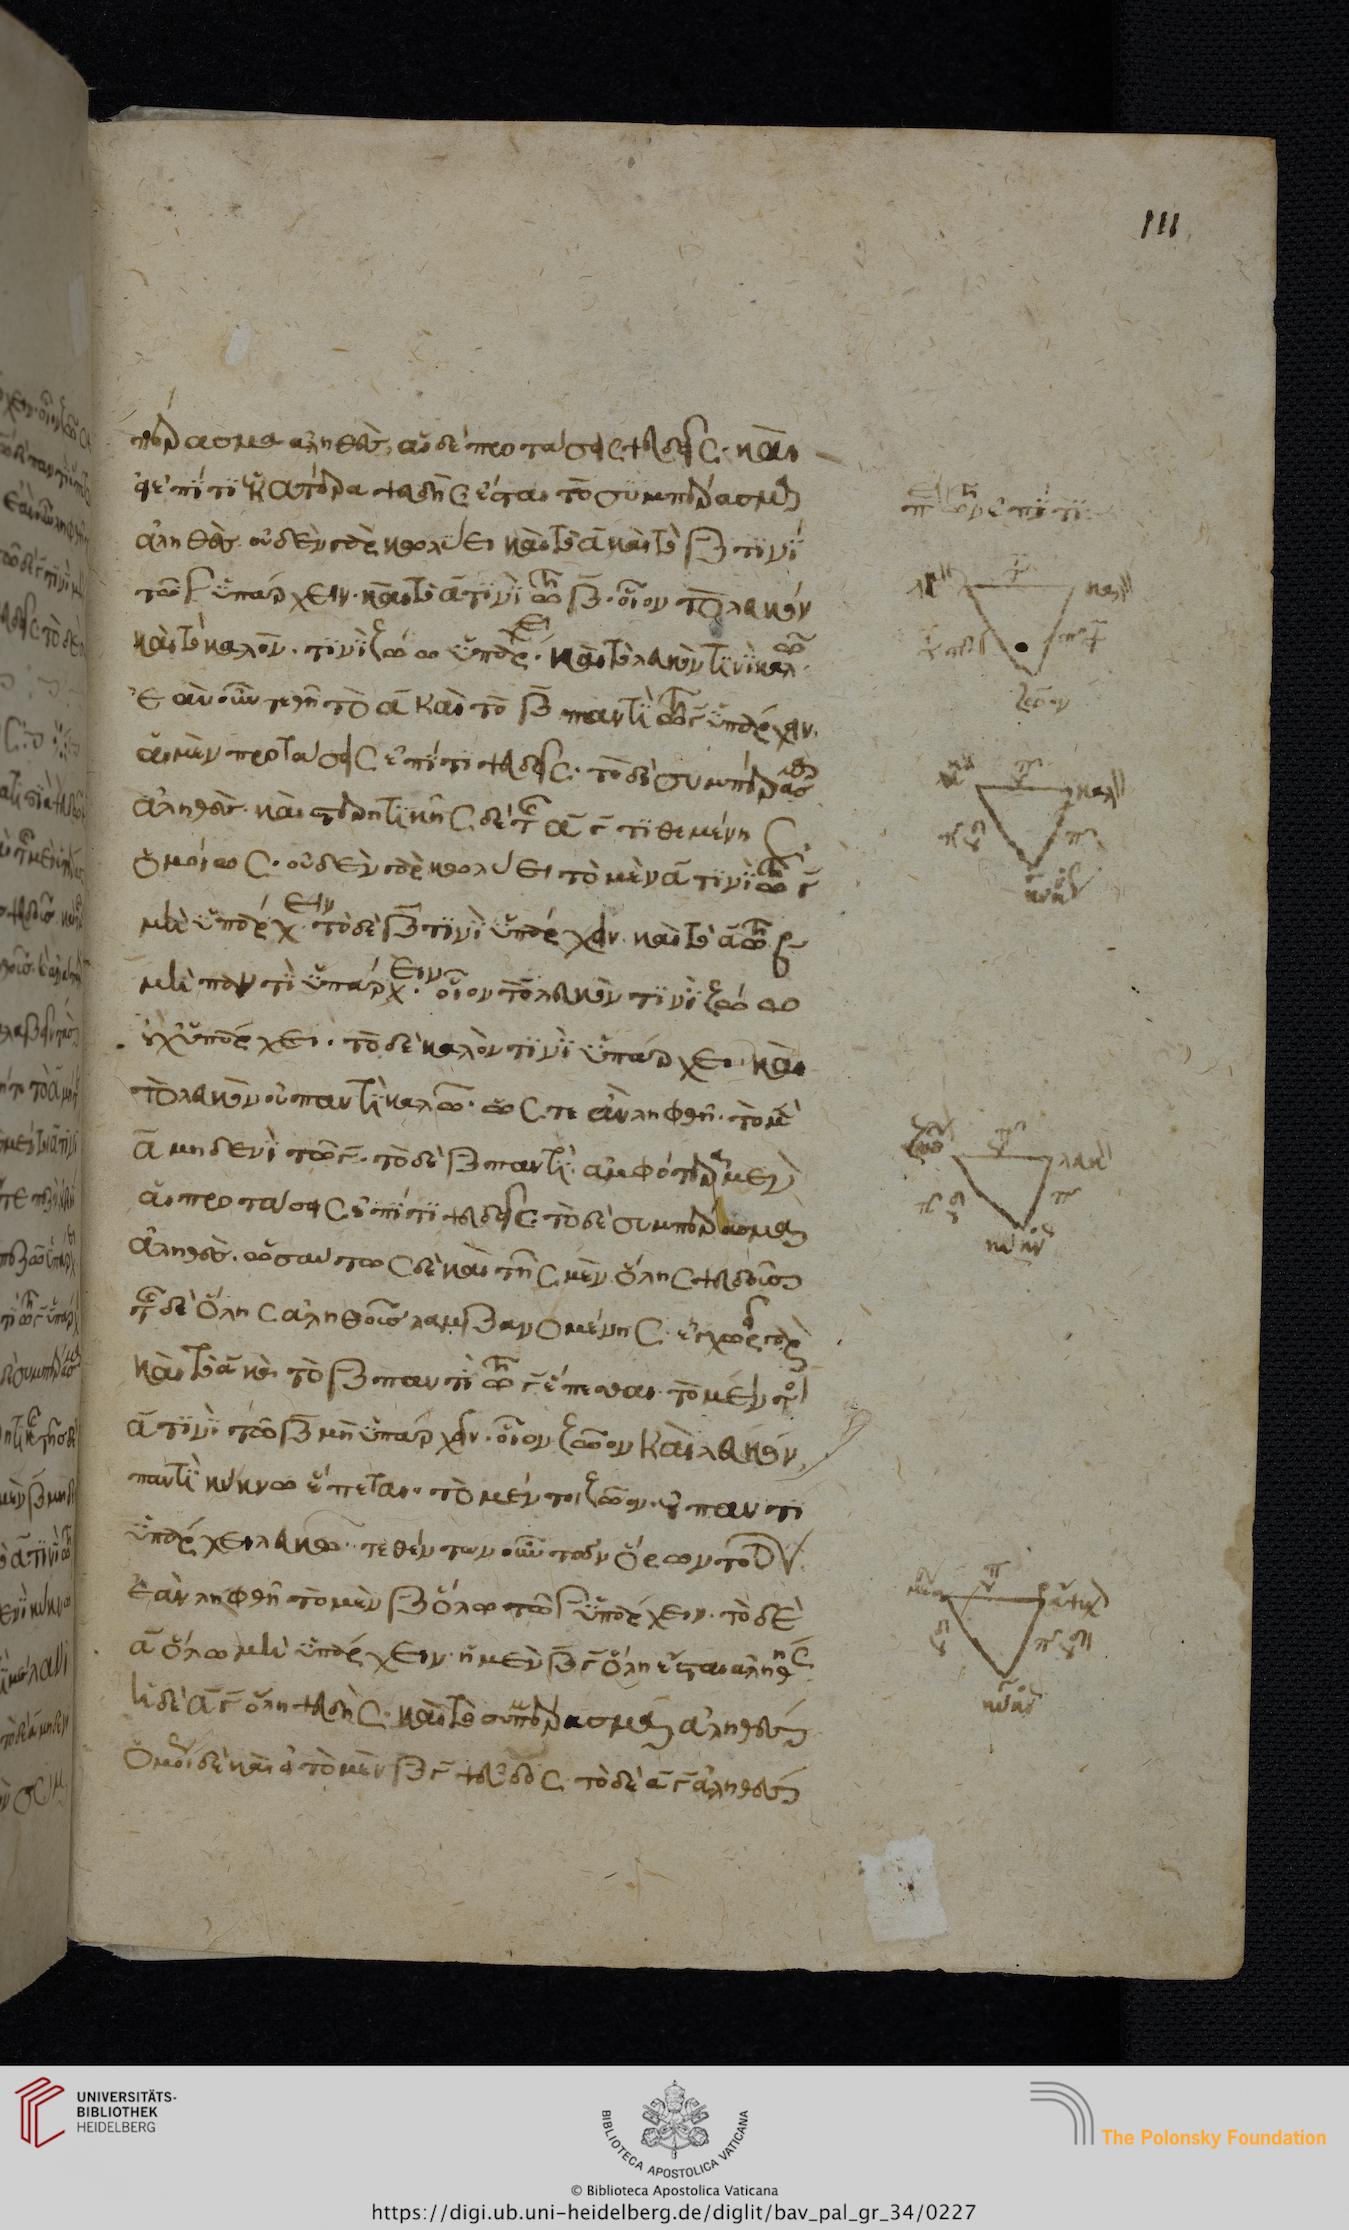 111
πέρασμα ἀληθὲς, αἱ δὲ προτάσεις ψευδεῖς· καὶ
εἰ ἐπί τι ἑκατέρα ψευδὴς ἔσται τὸ συμπέρασμα
ἀληθές. οὐδὲν γὰρ κωλύει καὶ τὸ α καὶ τὸ β τινὶ
τῶ γ ὑπάρχειν· καὶ τὸ α τινὶ τῶ β· οἷον τὸ λευκὸν
καὶ τὸ καλὸν· τινὶ ζώω ὑπάρχει· καὶ τὸ λευκὸν τινὶ καλῶ
ἐὰν οὖν τεθῆ τὸ α καὶ τὸ β παντὶ τῶ γ ὑπάρχειν.
αἱ μὲν προτάσεις ἐπί τι ψευδεῖς· τὸ δὲ συμπέρασμα
ἀληθές· καὶ στερητικῆς δὲ τῆς α γ τιθεμένης
ὁμοίως· οὐδὲν γὰρ κωλύει τὸ μὲν α τινὶ τῶ γ
μὴ ὑπάρχειν· τὸ δὲ β τινὶ ὑπάρχειν· καὶ τὸ α τῶ β
μὴ παντὶ ὑπάρχειν· οἷον τὸ λευκὸν τινὶ ζώω
οὐχ ὑπάρχει· τὸ δὲ καλὸν τινὶ ὑπάρχει· καὶ
τὸ λευκὸν οὐ παντὶ καλῶ· ὥστε ἂν ληφθῆ· τὸ μὲν
α μηδενὶ τῶ γ· τὸ δὲ β παντί· ἀμφότεραι μὲν
αἱ προτάσεις ἐπί τι ψευδεῖς· τὸ δὲ συμπέρασμα
ἀληθές· ὡσαύτως δὲ καὶ τῆς μὲν ὅλης ψευδοῦς
τῆς δὲ ὅλης ἀληθοῦς λαμβανομένης· ἐγχωρεῖ γὰρ
καὶ τὸ α καὶ τὸ β παντὶ τῶ γ ἕπεσθαι· τὸ μέντοι
α τινὶ τῶ β μὴ ὑπάρχειν· οἷον ζῶον καὶ λευκὸν,
παντὶ κύκνω ἕπεται· τὸ μέντοι ζῶον οὐ παντὶ
ὑπάρχει λευκῶ· τεθέντων οὖν τῶν ὅρων τοιούτων
ἐὰν ληφθῆ τὸ μὲν β ὅλω τῶ γ ὑπάρχειν· τὸ δὲ
α ὅλω μὴ ὑπάρχειν· ἡ μὲν β γ ὅλη ἔσται ἀληθὴς
ἡ δὲ α γ ὅλη ψευδὴς· καὶ τὸ συμπέρασμα ἀληθές
ὁμοίως δὲ καὶ εἰ τὸ μὲν β γ ψεῦδος· τὸ δὲ α γ ἀληθές
ζῶον
UNIVERSITÄTS-
BIBLIOTHEK
HEIDELBERG
BIBLIOTECA APOSTOLICA VATICANA
The Polonsky Foundation
© Biblioteca Apostolica Vaticana
https://digi.ub.uni-heidelberg.de/diglit/bav_pal_gr_34/0227